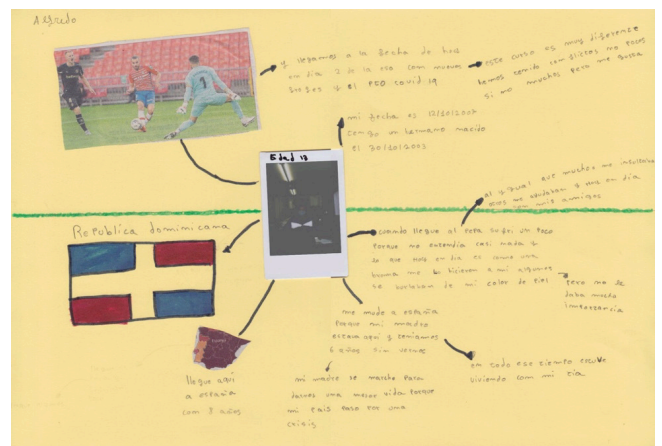 Alfredo
y llegamos a la fecha de hoy
en dia 2 de la eso con nuevos
y el PTO covid 19
este curso es muy diferente
hemos tenido conflictos no pocos
si no muchos pero me gusta
mi fecha es 12/10/2007
tengo un hermano nacido
el 30/10/2003
Edad 13
al igual que muchos me insultaban
otros me ayudaban y hoy en dia
son mis amigos
Republica dominicana
cuando llegue al cepa sufri un poco
porque no entendia casi nada y
lo que hoy en dia es como una
broma me lo hicieron a mi algunos
se burlaban de mi color de piel
pero no le
daba mucha
importancia
me mude a españa
porque mi madre
estava aqui y teniamos
6 años sin vernos
en todo ese tiempo estuve
viviendo con mi tia
llegue aqui
a españa
con 8 años
mi madre se marcho para
darnos una mejor vida porque
mi pais paso por una
crisis